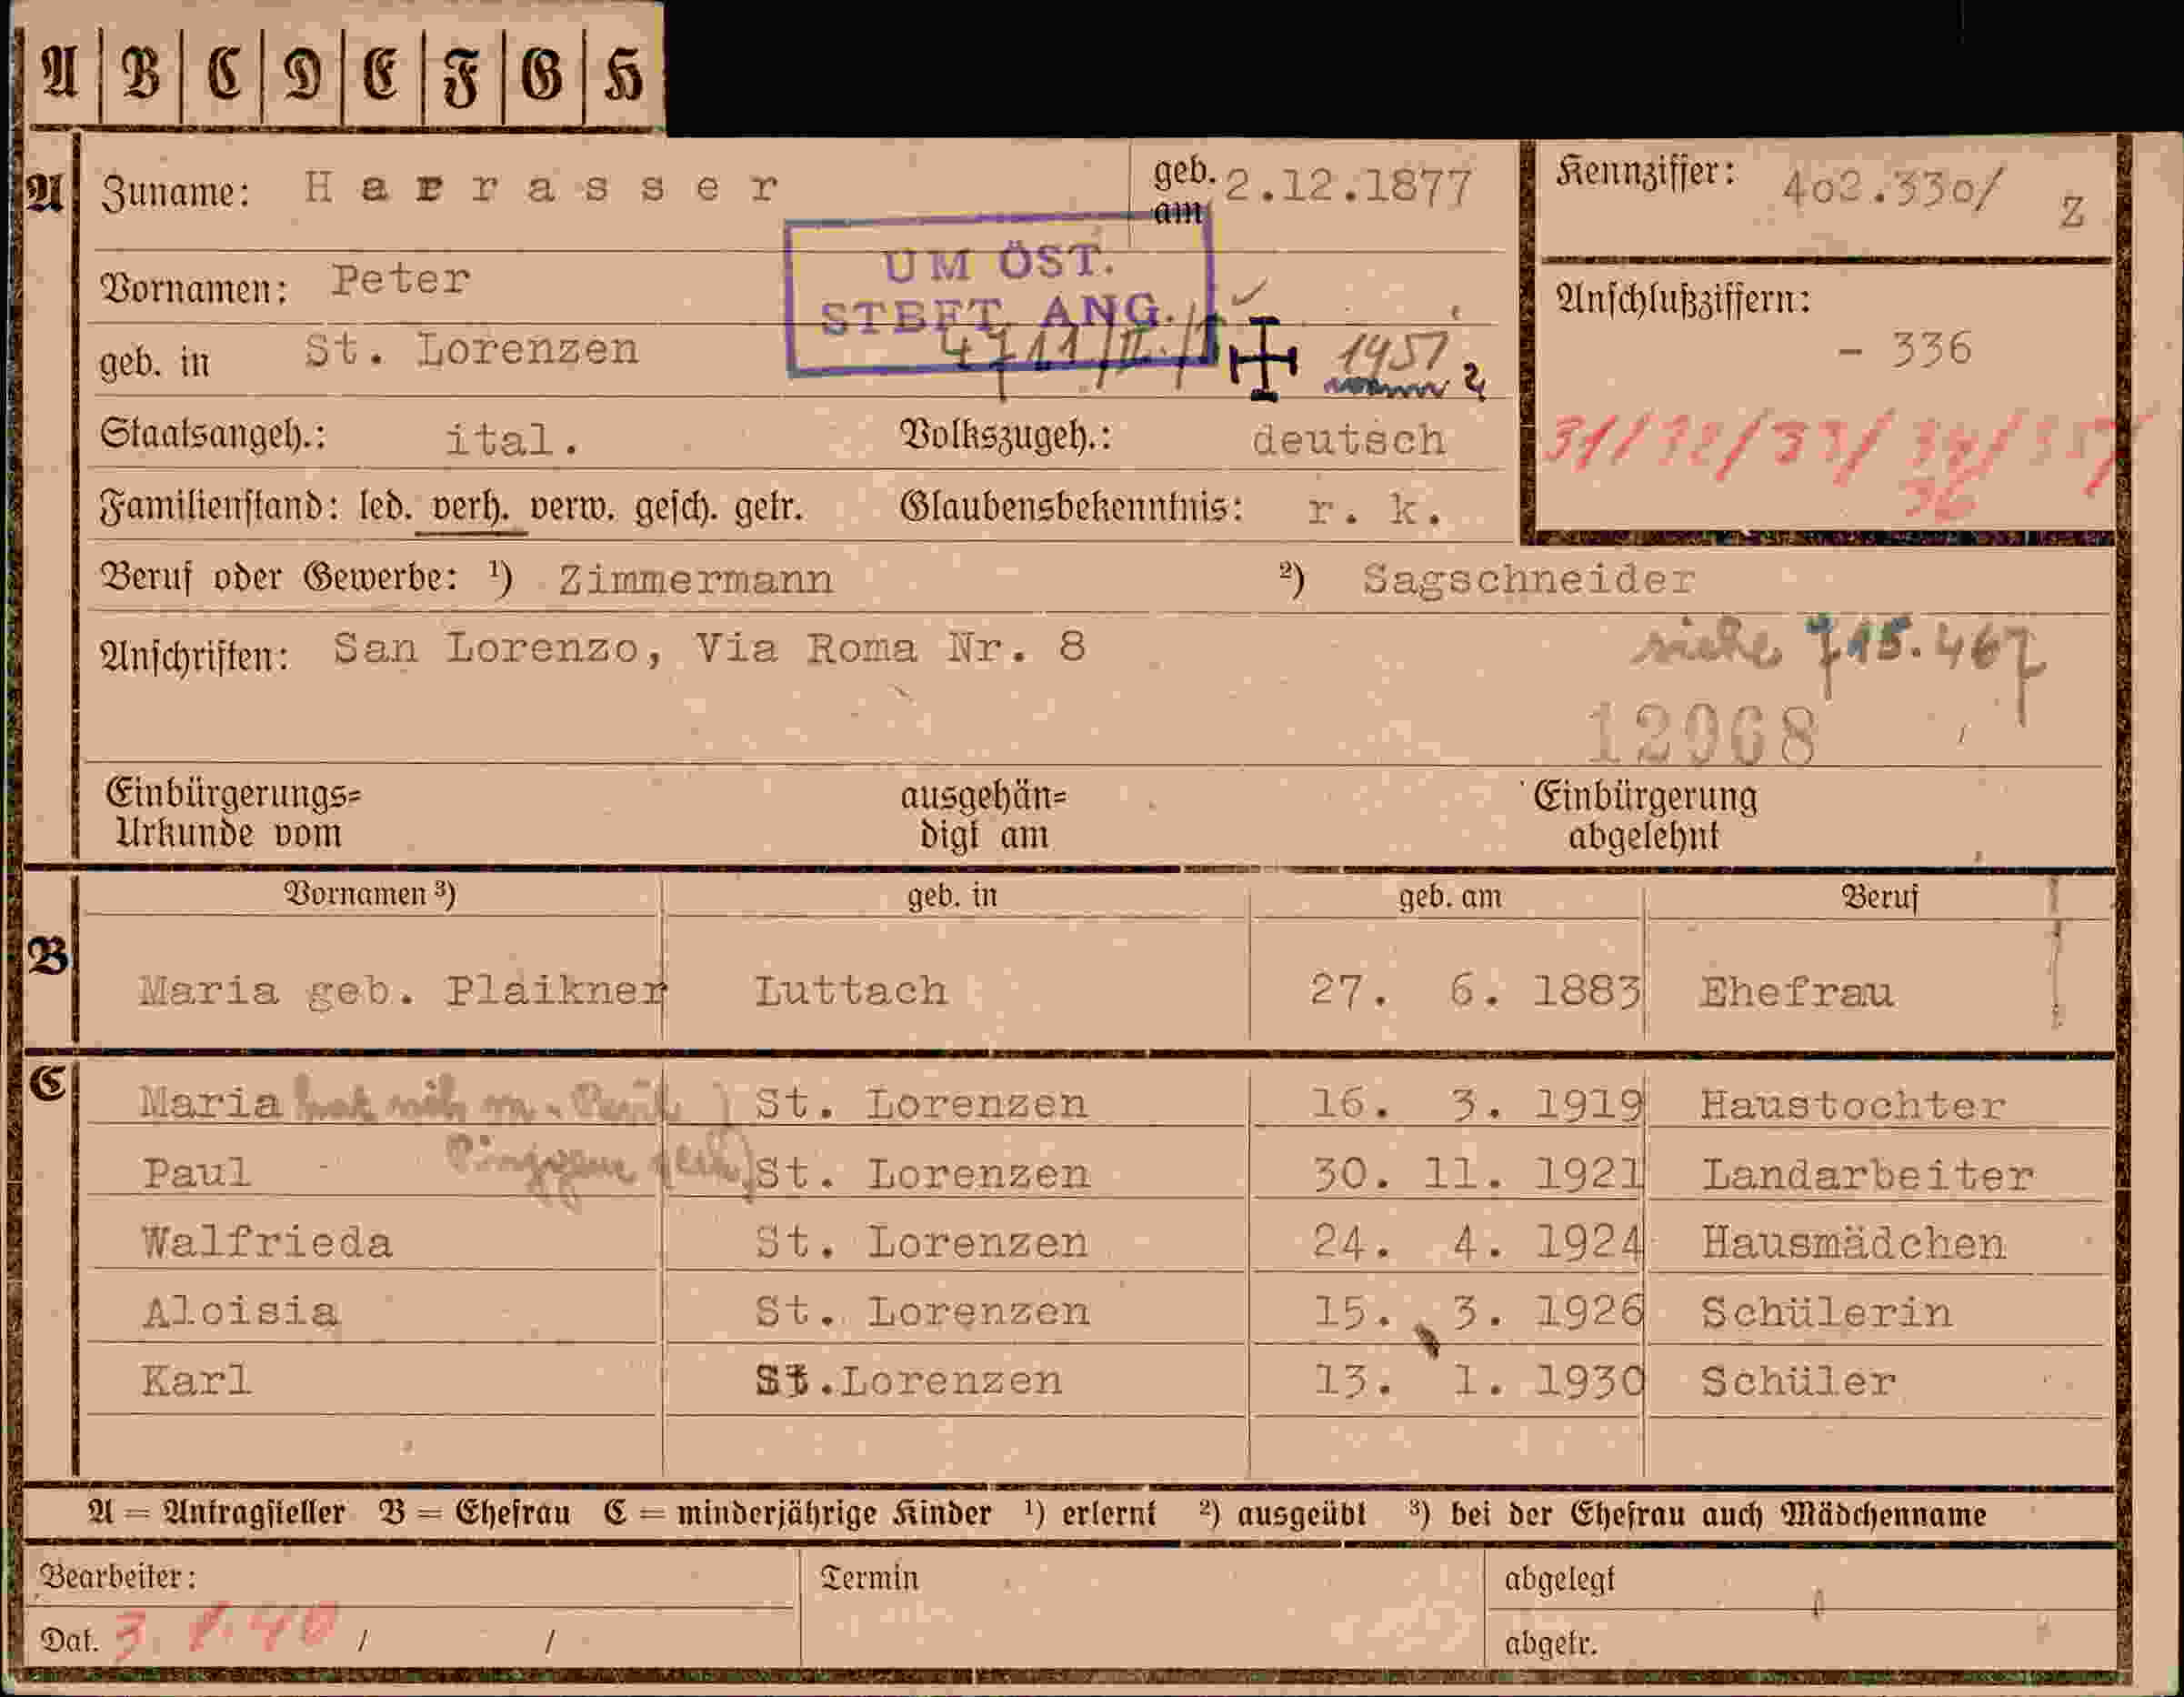 A B C D E F G H
A Zuname: Harrasser geb. am 2.12.1877 Kennziffer: 402.330/ Z
UM ÖST.
Vornamen: Peter STBFT. ANG. Anschlußziffern:
geb. in St. Lorenzen 4711/II./1 1951 - 336
Staatsangeh.: ital. Volkszugeh.: deutsch 31/32/33/34/35/
36
Familienstand: led. verh. verw. gesch. getr. Glaubensbekenntnis: r. k.
Beruf oder Gewerbe: ¹) Zimmermann ²) Sagschneider
Anschriften: San Lorenzo, Via Roma Nr. 8 siehe 715.467
12968
Einbürgerungs= Urkunde vom ausgehän= digt am Einbürgerung abgelehnt
Vornamen ³) geb. in geb. am Beruf
B Maria geb. Plaikner Luttach 27. 6. 1883 Ehefrau
C Maria hat sich m. St. Lorenzen 16. 3. 1919 Haustochter
Paul St. Lorenzen 30. 11. 1921 Landarbeiter
Walfrieda St. Lorenzen 24. 4. 1924 Hausmädchen
Aloisia St. Lorenzen 15. 3. 1926 Schülerin
Karl St. Lorenzen 13. 1. 1930 Schüler
A = Antragsteller B = Ehefrau C = minderjährige Kinder ¹) erlernt ²) ausgeübt ³) bei der Ehefrau auch Mädchenname
Bearbeiter: Termin abgelegt
Dat. 3. 1. 40 / / abgetr.